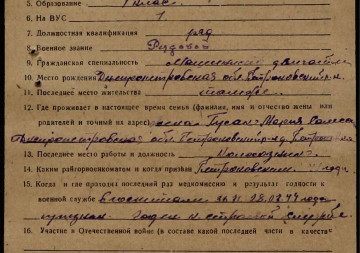 5. Образование 1 класс
6. На ВУС 1
7. Должностная квалификация ряд
8. Военное звание Рядовой
9. Гражданская специальность Машинист
10. Место рождения Днепропетровская обл. Петриковский
11. Последнее место жительства там же
12. Где проживает в настоящее время семья (фамилия, имя и отчество жены или
родителей и точный их адрес) жена Гусак Мария
Днепропетровская обл. Петриковский р-д
13. Последнее место работы и должность
14. Каким райгорвоенкоматом и когда призван Петриковским 41 года
15. Когда и где проходил последний раз медкомиссию и результат годности к
военной службе в госпитале 28.02.44 года
признан годен к строевой службе
16. Участие в Отечественной войне (в составе какой последней части в качестве